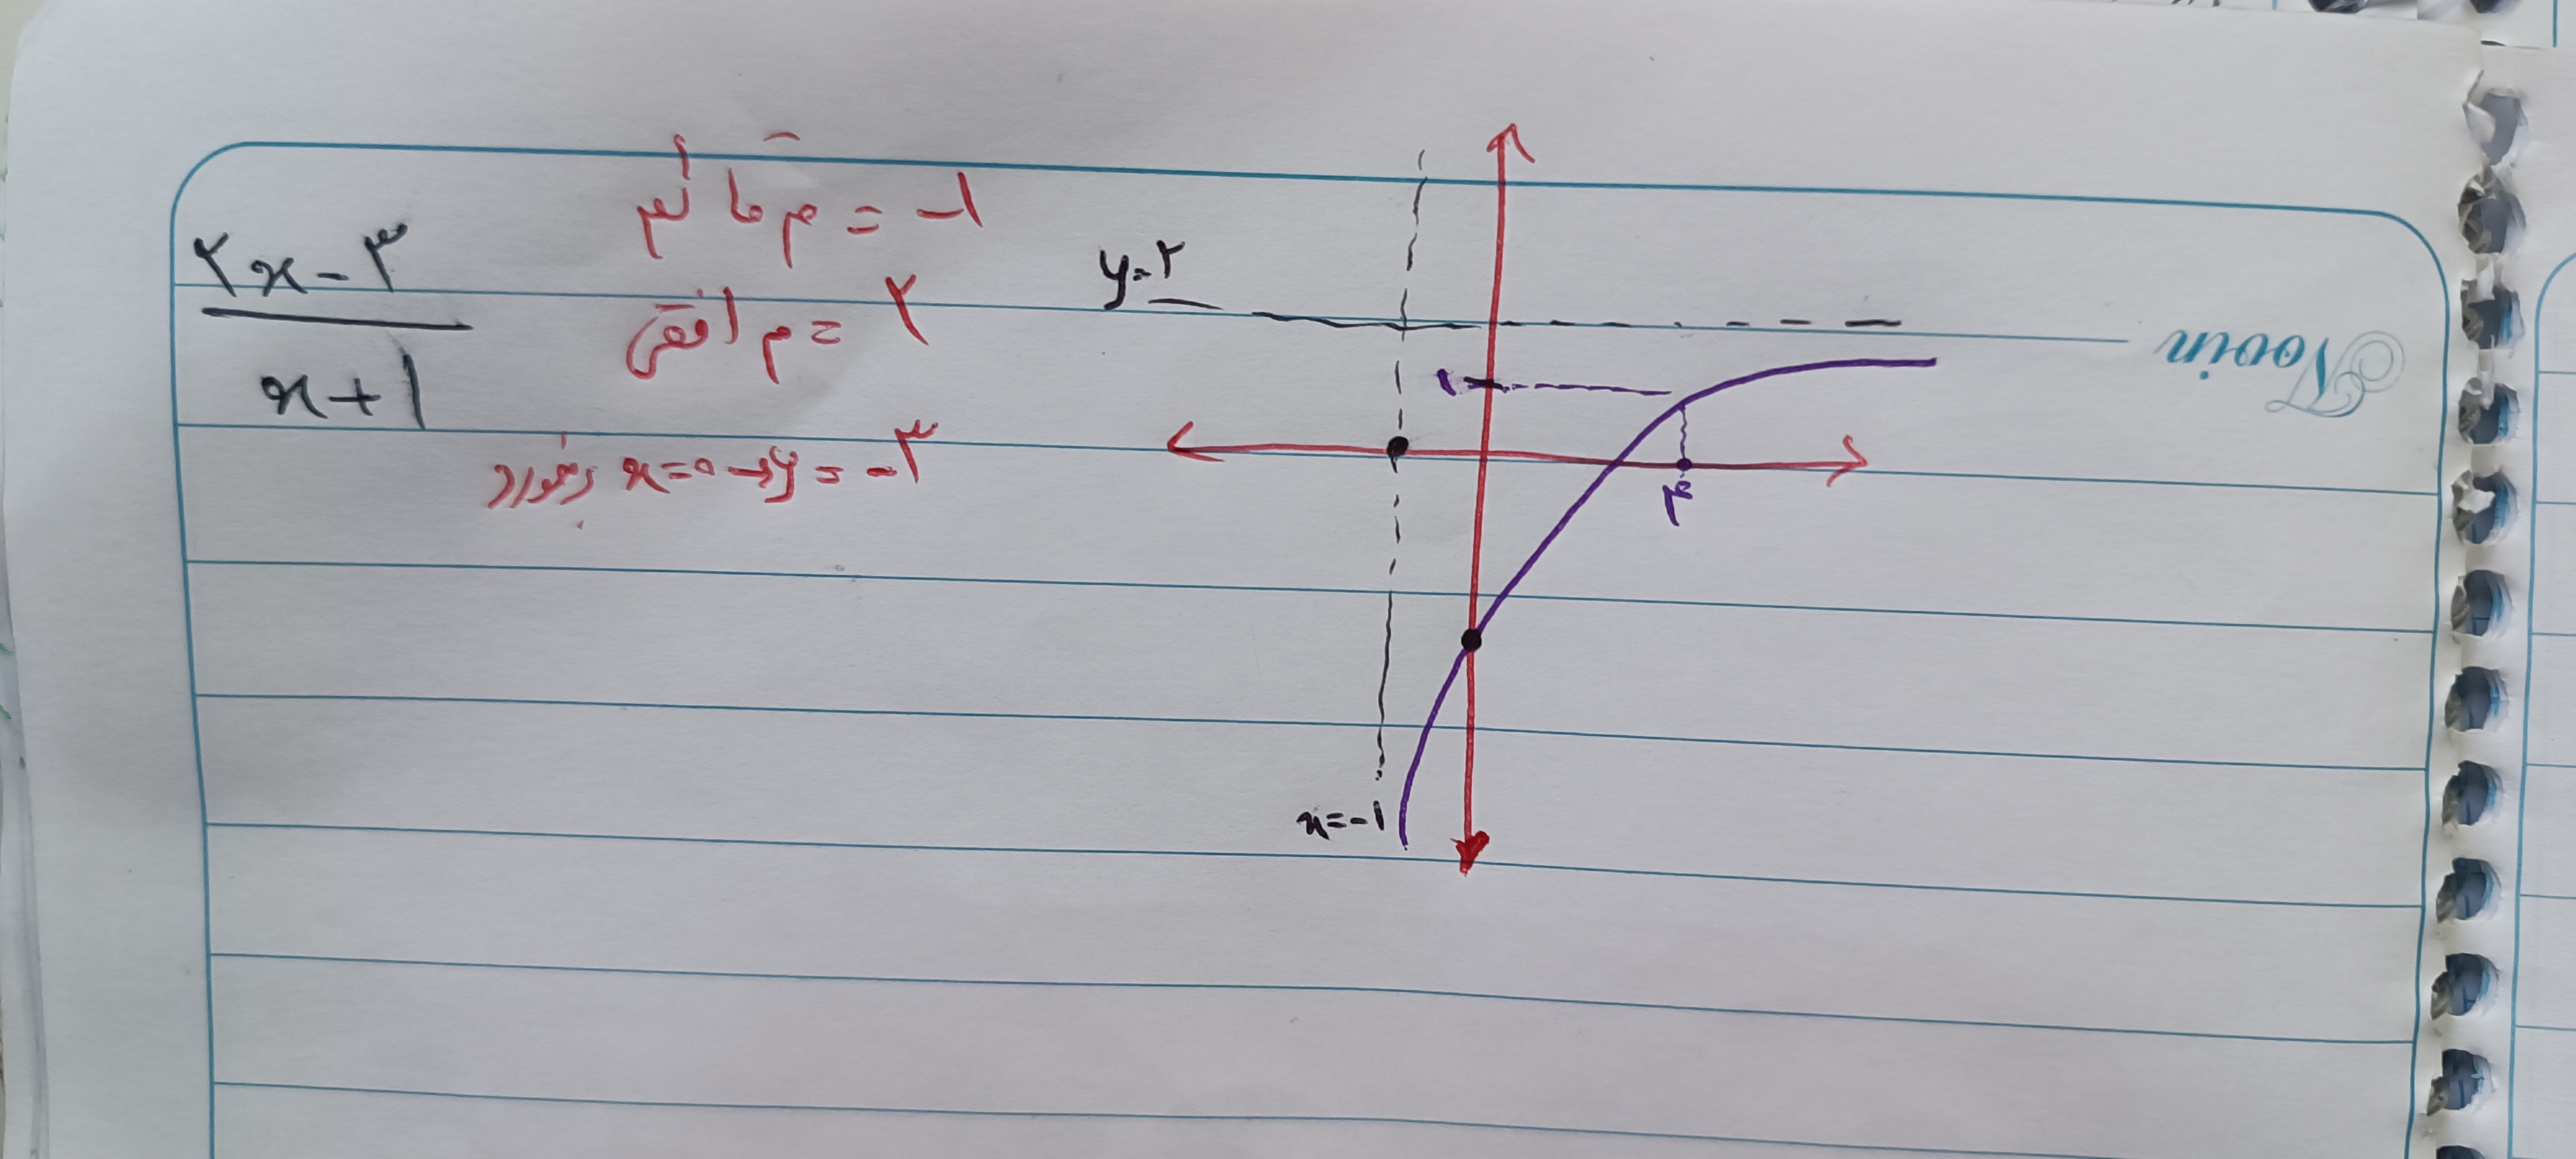 ۲x-۳
x+۱
م قائم = -۱
م افقی = ۲
برخورد x=۰→y=-۳
y=۲
۱
۴
x=-۱
Novin